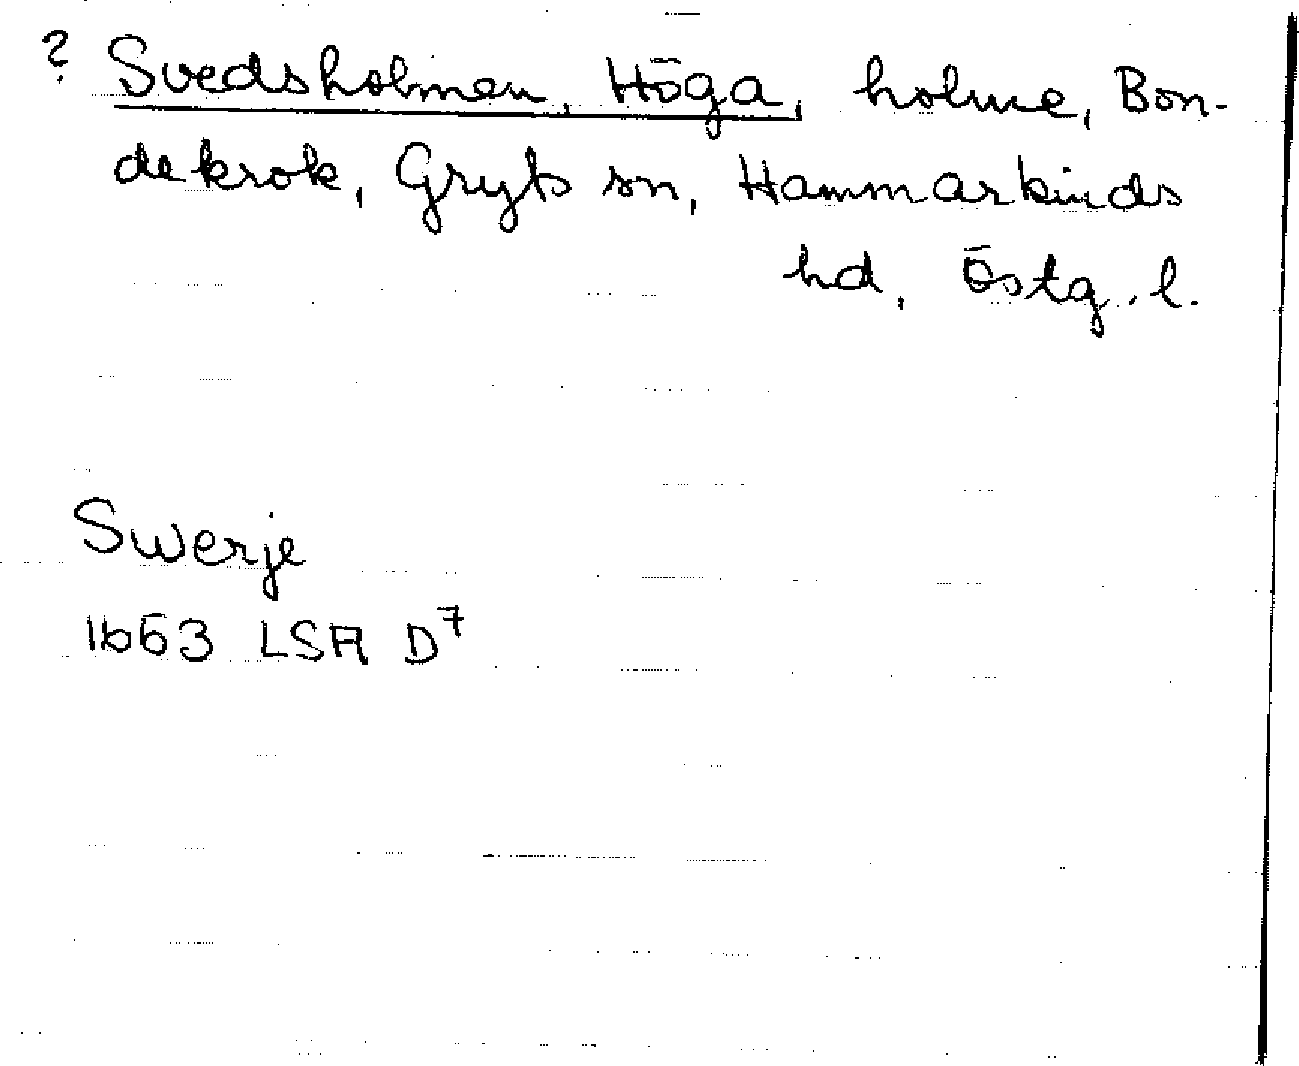 ? Svedsholmen, Höga, holme, Bon-
dekrok, Gryts sn, Hammarkinds
hd, Östg. l.
Swerje
1653 LSA D7